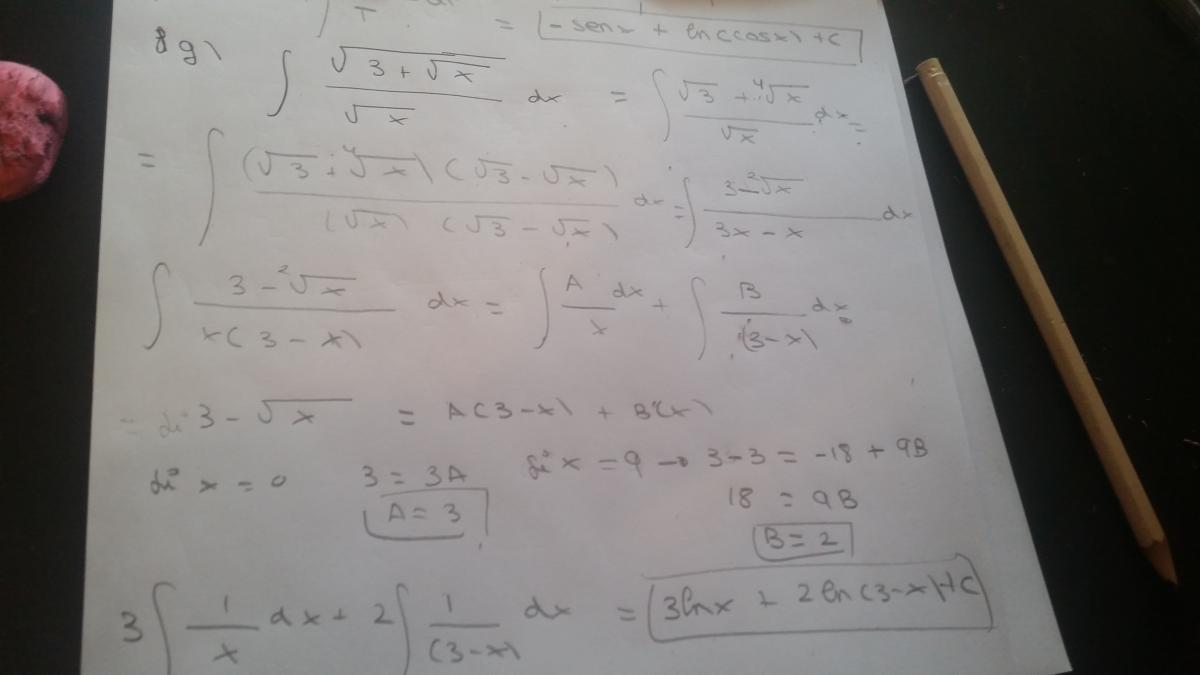 = -senx + ln(cosx) + C
g) ∫ √(3 + √x) / √x dx = ∫ (√3 + ⁴√x) / √x dx =
= ∫ (√3 + ⁴√x)(√3 - √x) / (√x)(√3 - √x) dx = ∫ (3 - ²√x) / (3x - x) dx
∫ (3 - ²√x) / x(3 - x) dx = ∫ A/x dx + ∫ B/(3-x) dx
3 - √x = A(3-x) + B(x)
si x = 0 3 = 3A si x = 9 → 3-3 = -18 + 9B
A = 3 18 = 9B
B = 2
3 ∫ 1/x dx + 2 ∫ 1/(3-x) dx = 3lnx + 2ln(3-x) + C